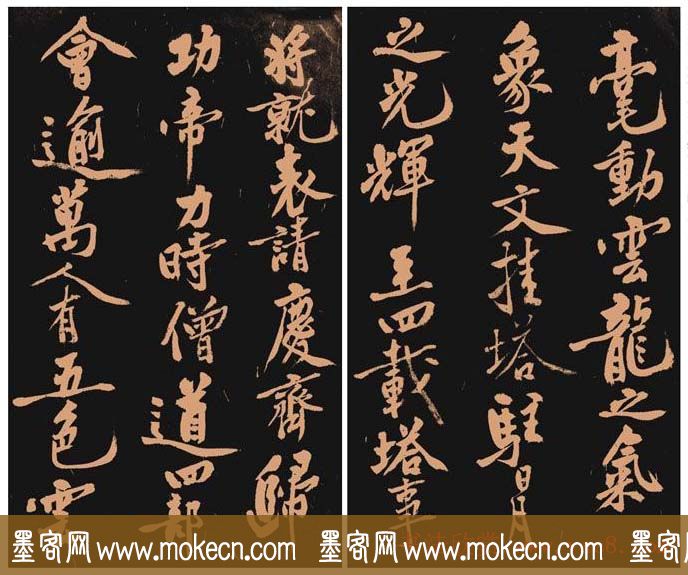 毫動雲龍之氣
象天文挂塔駐日月
之光輝至四載塔事
將就表請慶齋歸
功帝力時僧道四部
會逾萬人有五色雲
墨客网 www.mokecn.com 墨客网 www.mokecn.com 墨客网